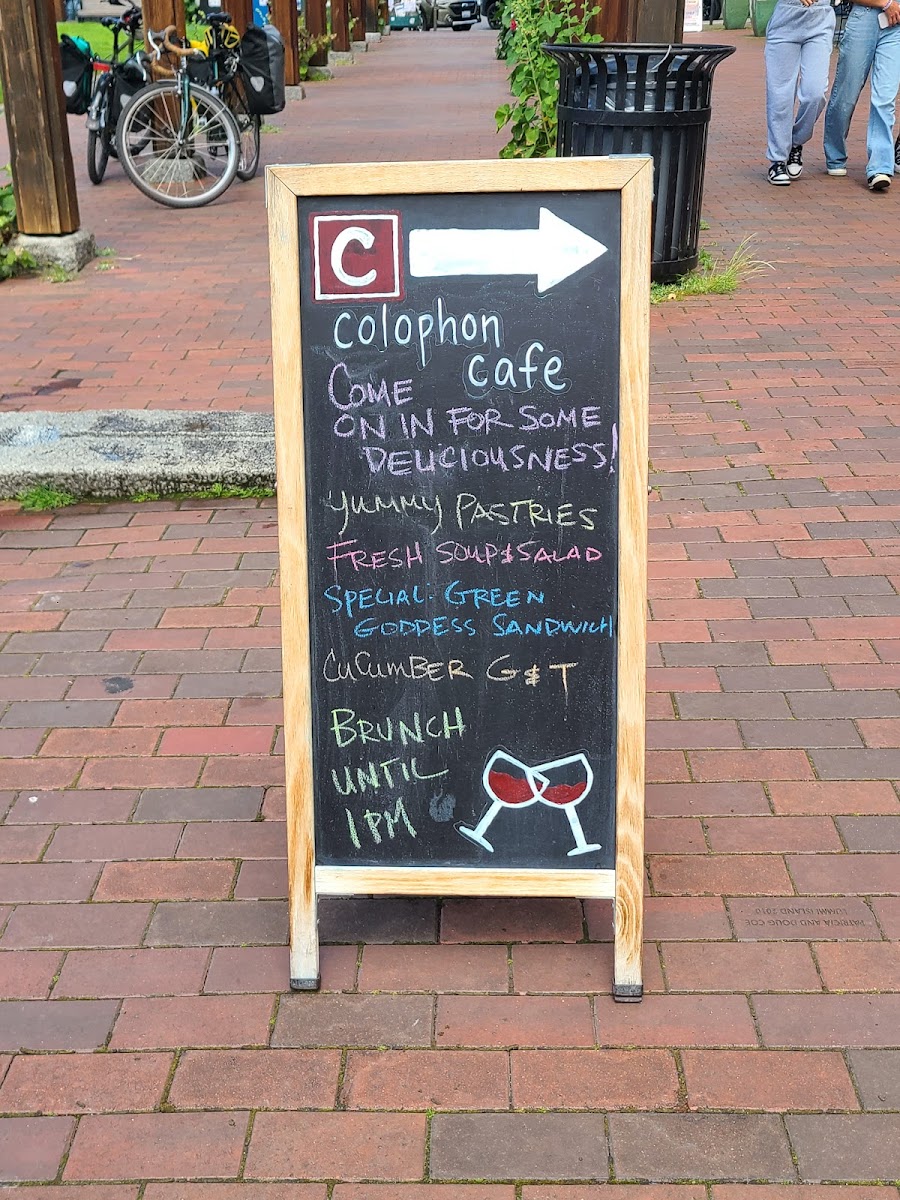 C
colophon
cafe
COME
ON IN FOR SOME
DELICIOUSNESS!
YUMMY PASTRIES
FRESH SOUP & SALAD
SPECIAL: GREEN
GODDESS SANDWICH
CUCUMBER G & T
BRUNCH
UNTIL
1 PM
PATRICIA AND DOUG COE
LUMMI ISLAND 2010